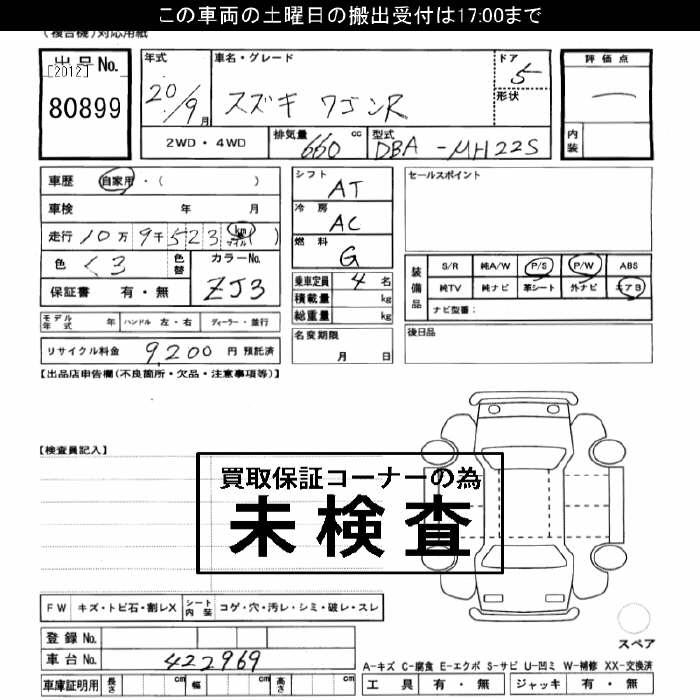 この車両の土曜日の搬出受付は17:00まで
(複合機)対応用紙
出品No.
[2012]
80899
年式
20/9月
車名・グレード
スズキ ワゴンR
ドア
5
形状
評価点
内装
2WD・4WD
排気量 660 cc
型式 DBA-MH22S
車歴 自家用・( )
車検 年 月
走行 10万9千523 km マイル ( )
色 くろ
色替
カラーNo.
ZJ3
保証書 有・無
シフト
AT
冷房
AC
燃料
G
乗車定員 4名
積載量 kg
総重量 kg
セールスポイント
装備品
S/R 純A/W P/S P/W ABS
純TV 純ナビ 革シート 外ナビ エアB
ナビ型番:
モデル年式 年 ハンドル 左・右 ディーラー・並行
リサイクル料金 9,200 円 預託済
名変期限
月 日
後日品
【出品店申告欄(不良箇所・欠品・注意事項等)】
【検査員記入】
買取保証コーナーの為
未検査
FW キズ・トビ石・割レX シート内装 コゲ・穴・汚レ・シミ・破レ・スレ
登録No.
車台No. 422969
車庫証明用 長さ cm 幅 cm 高さ cm
スペア
A-キズ C-腐食 E-エクボ S-サビ U-凹ミ W-補修 XX-交換済
工具 有・無 ジャッキ 有・無